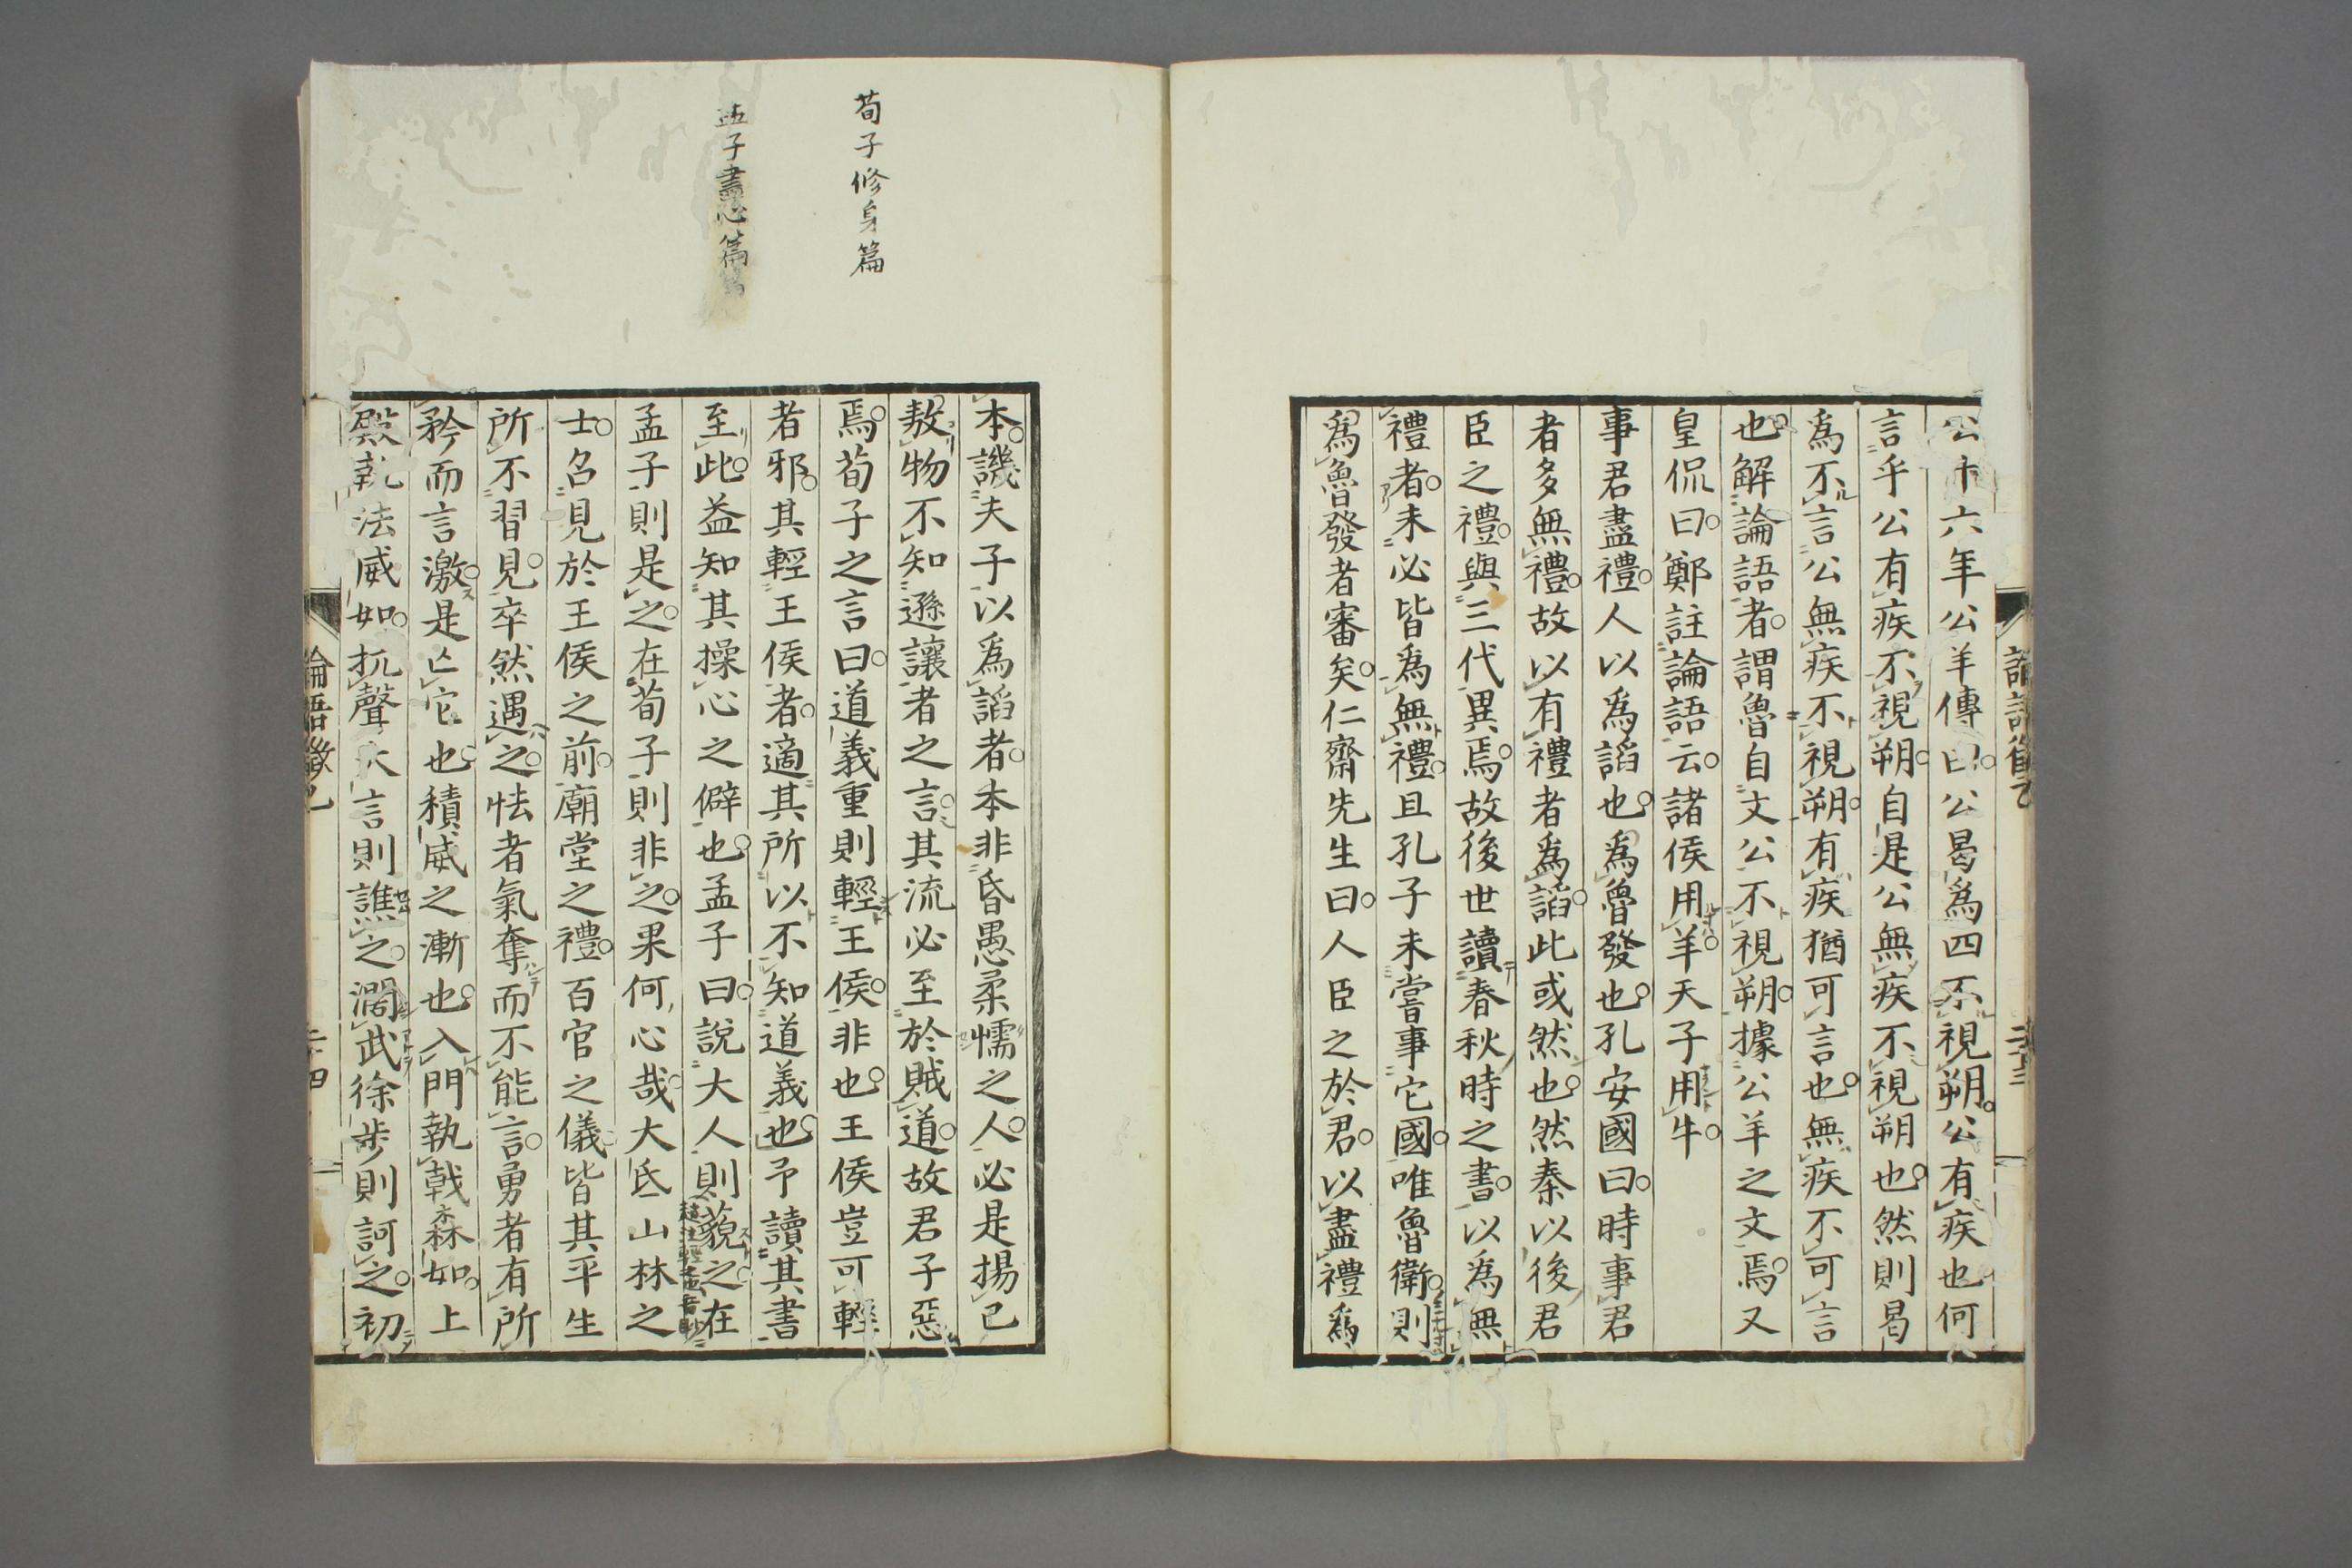 公十六年公羊傳曰公曷爲四不視朔公有疾也何
言乎公有疾不視朔自是公無疾不視朔也然則曷
爲不言公無疾不視朔有疾猶可言也無疾不可言
也解論語者謂魯自文公不視朔據公羊之文焉又
皇侃曰鄭註論語云諸侯用羊天子用牛
事君盡禮人以爲諂也爲魯發也孔安國曰時事君
者多無禮故以有禮者爲諂此或然也然秦以後君
臣之禮與三代異焉故後世讀春秋時之書以爲無
禮者未必皆爲無禮且孔子未嘗事它國唯魯衛則
爲魯發者審矣仁齋先生曰人臣之於君以盡禮爲
荀子修身篇
孟子盡心篇
本譏夫子以爲諂者本非昏愚柔懦之人必是揚已
敖物不知遜讓者之言其流必至於賊道故君子惡
焉荀子之言曰道義重則輕王侯非也王侯豈可輕
者邪其輕王侯者適其所以不知道義也予讀其書
至此益知其操心之僻也孟子曰說大人則藐之在
孟子則是之在荀子則非之果何心哉大氐山林之
士名見於王侯之前廟堂之禮百官之儀皆其平生
所不習見卒然遇之怯者氣奪而不能言勇者有所
矜而言激是亡它也積威之漸也入門執戟森如上
殿執法威如抗聲大言則譙之濶武徐步則訶之初
論語徵乙
二十四